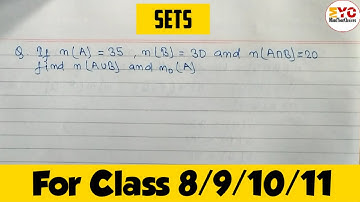 SETS
EYC
Q. If n(A) = 35, n(B) = 30 and n(A∩B)=20
find n(A∪B) and n₀(A)
For Class 8/9/10/11